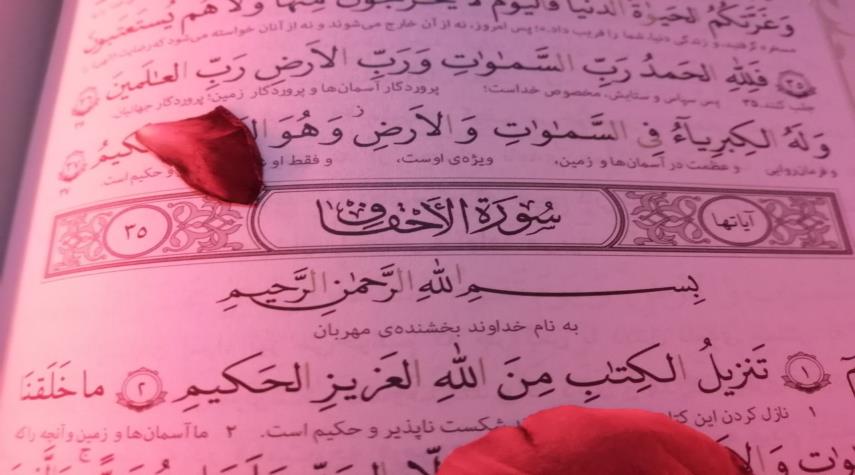 وَغَرَّتكُمُ الحَيوٰةُ الدُّنيا فَاليَومَ لا يُخرَجونَ مِنها وَلا هُم يُستَعتَبونَ
مسخره گرفتید، و زندگی دنیا، شما را فریب داد.» پس امروز، نه از آن خارج می‌شوند و نه از آنان خواسته می‌شود که رضایت
فَلِلّٰهِ الحَمدُ رَبِّ السَّمٰوٰتِ وَرَبِّ الاَرضِ رَبِّ العٰلَمينَ ۳۶
جلب کنند. ۳۵ پس سپاس و ستایش، مخصوص خداست؛ پروردگار آسمان‌ها و پروردگار زمین؛ پروردگار جهانیان.
وَلَهُ الكِبرِياءُ فِى السَّمٰوٰتِ وَ الاَرضِ وَ هُوَ
و فرمان‌روایی و عظمت در آسمان‌ها و زمین، ویژه‌ی اوست، و فقط او و حکیم است.
آیاتها سُورَةُ الأَحْقَافِ ۳۵
بِسمِ اللّٰهِ الرَّحمٰنِ الرَّحيمِ
به نام خداوند بخشنده‌ی مهربان
۱ تَنزيلُ الكِتٰبِ مِنَ اللّٰهِ العَزيزِ الحَكيمِ ۲ ما خَلَقنَا
۱ نازل کردن این شکست ناپذیر و حکیم است. ۲ ما آسمان‌ها و زمین و آنچه را که